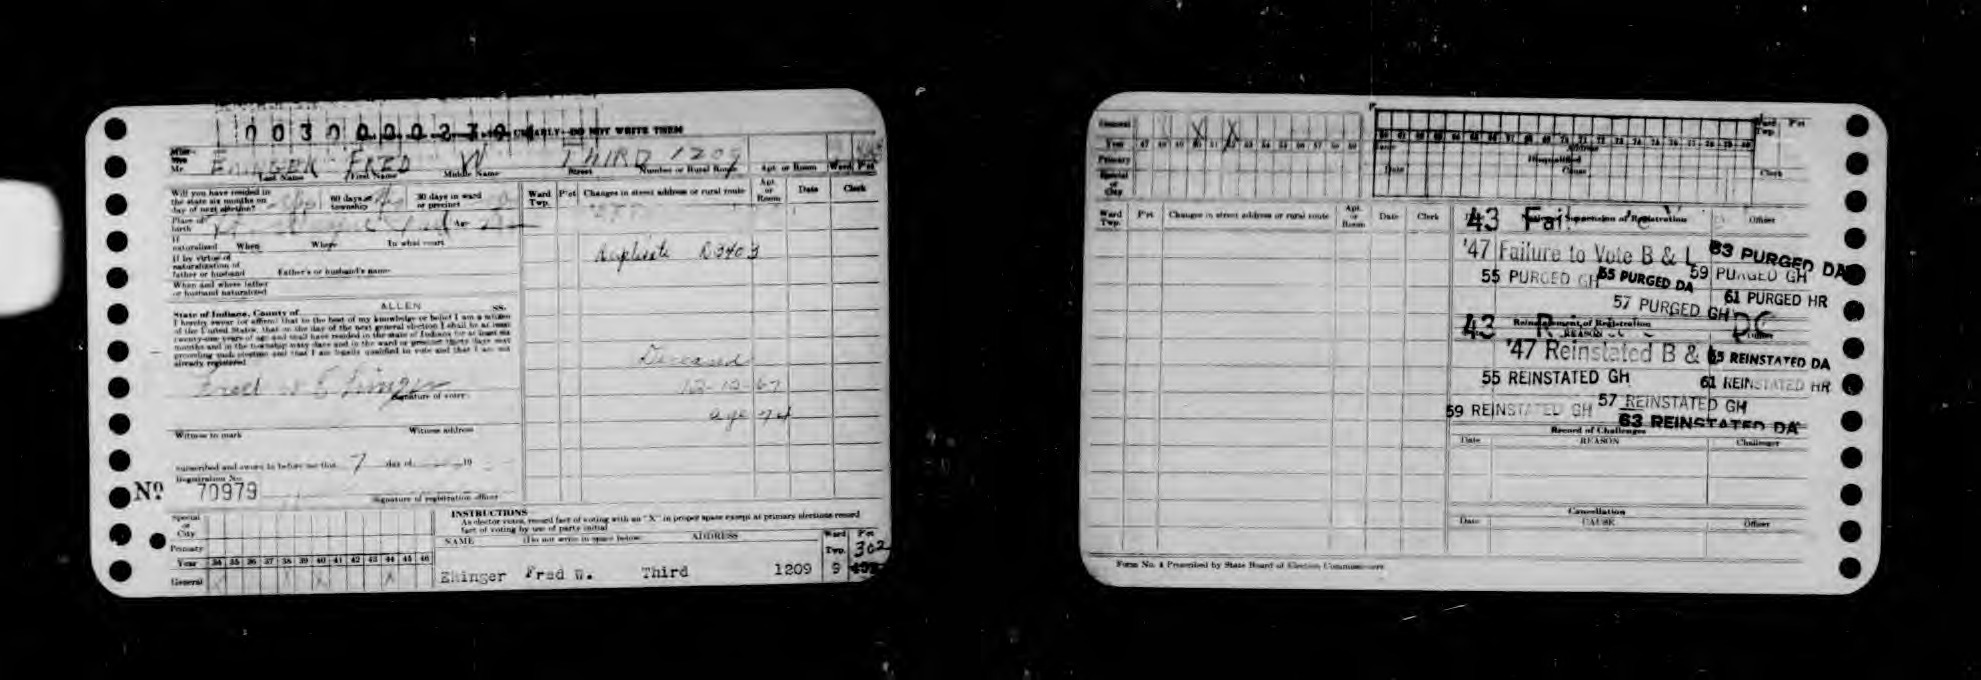 CLEARLY—DO NOT WRITE THEM
Miss
Mrs
Mr. FRED W THIRD 1209
Last Name First Name Middle Name Street Number or Rural Route Apt. or Room Ward Pct
Will you have resided in
the state six months on
day of next election?
60 days in
township
30 days in ward
or precinct
Place of
birth
Age
If
naturalized When Where In what court
If by virtue of
naturalization of
father or husband Father's or husband's name
When and where father
or husband naturalized
ALLEN
State of Indiana, County of ss.
I hereby swear (or affirm) that to the best of my knowledge or belief I am a citizen
of the United States, that on the day of the next general election I shall be at least
twenty-one years of age and shall have resided in the state of Indiana for at least six
months and in the township sixty days and in the ward or precinct thirty days next
preceding such election and that I am legally qualified to vote and that I am not
already registered
Fred W
Signature of voter
Witness to mark Witness address
Subscribed and sworn to before me this 7 day of 19
Registration No.
No 70979
Signature of registration officer
Ward
Twp. Pct Changes in street address or rural route Apt.
or
Room Date Clerk
Duplicate D3403
Deceased
12-12-67
age 74
Special
or
City
Primary
Year 34 35 36 37 38 39 40 41 42 43 44 45 46
General X X X X
INSTRUCTIONS
As elector votes, record fact of voting with an "X" in proper space except at primary elections record
fact of voting by use of party initial
NAME (Do not write in space below) ADDRESS Ward
Twp. Pct
302
Ehinger Fred W. Third 1209 9
General X X
Year 47 48 49 50 51 52 53 54 55 56 57 58 59
Primary
Special
or
City
60 61 62 63 64 65 66 67 68 69 70 71 72 73 74 75 76 77 78 79 80
Ward
Twp. Pct
Name Address
Disqualified
Date Cause Clerk
Ward
Twp. Pct Changes in street address or rural route Apt.
or
Room Date Clerk
Notice of Suspension of Registration Officer
43 Fail
'47 Failure to Vote B & L 63 PURGED DA
55 PURGED GH 65 PURGED DA 59 PURGED GH
57 PURGED GH 61 PURGED HR
Reinstatement of Registration
REASON Officer
43
'47 Reinstated B & 65 REINSTATED DA
55 REINSTATED GH 61 REINSTATED HR
59 REINSTATED GH 57 REINSTATED GH
63 REINSTATED DA
Record of Challenges
Date REASON Challenger
Cancellation
Date CAUSE Officer
Form No. 4 Prescribed by State Board of Election Commissioners